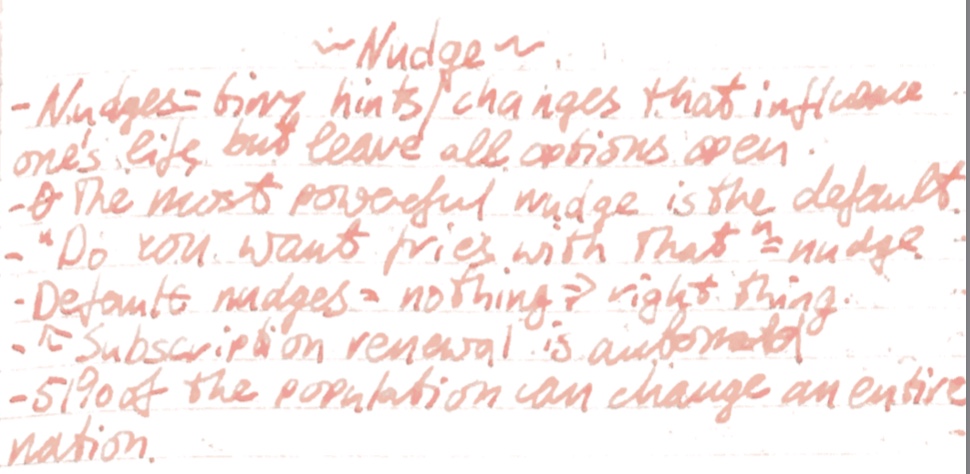 ~ Nudge ~
- Nudges = tiny hints/changes that influence
one's life, but leave all options open.
- The most powerful nudge is the default.
- "Do you want fries with that" = nudge
- Default nudges = nothing => right thing.
- Subscription renewal is automatd
- 51% of the population can change an entire
nation.